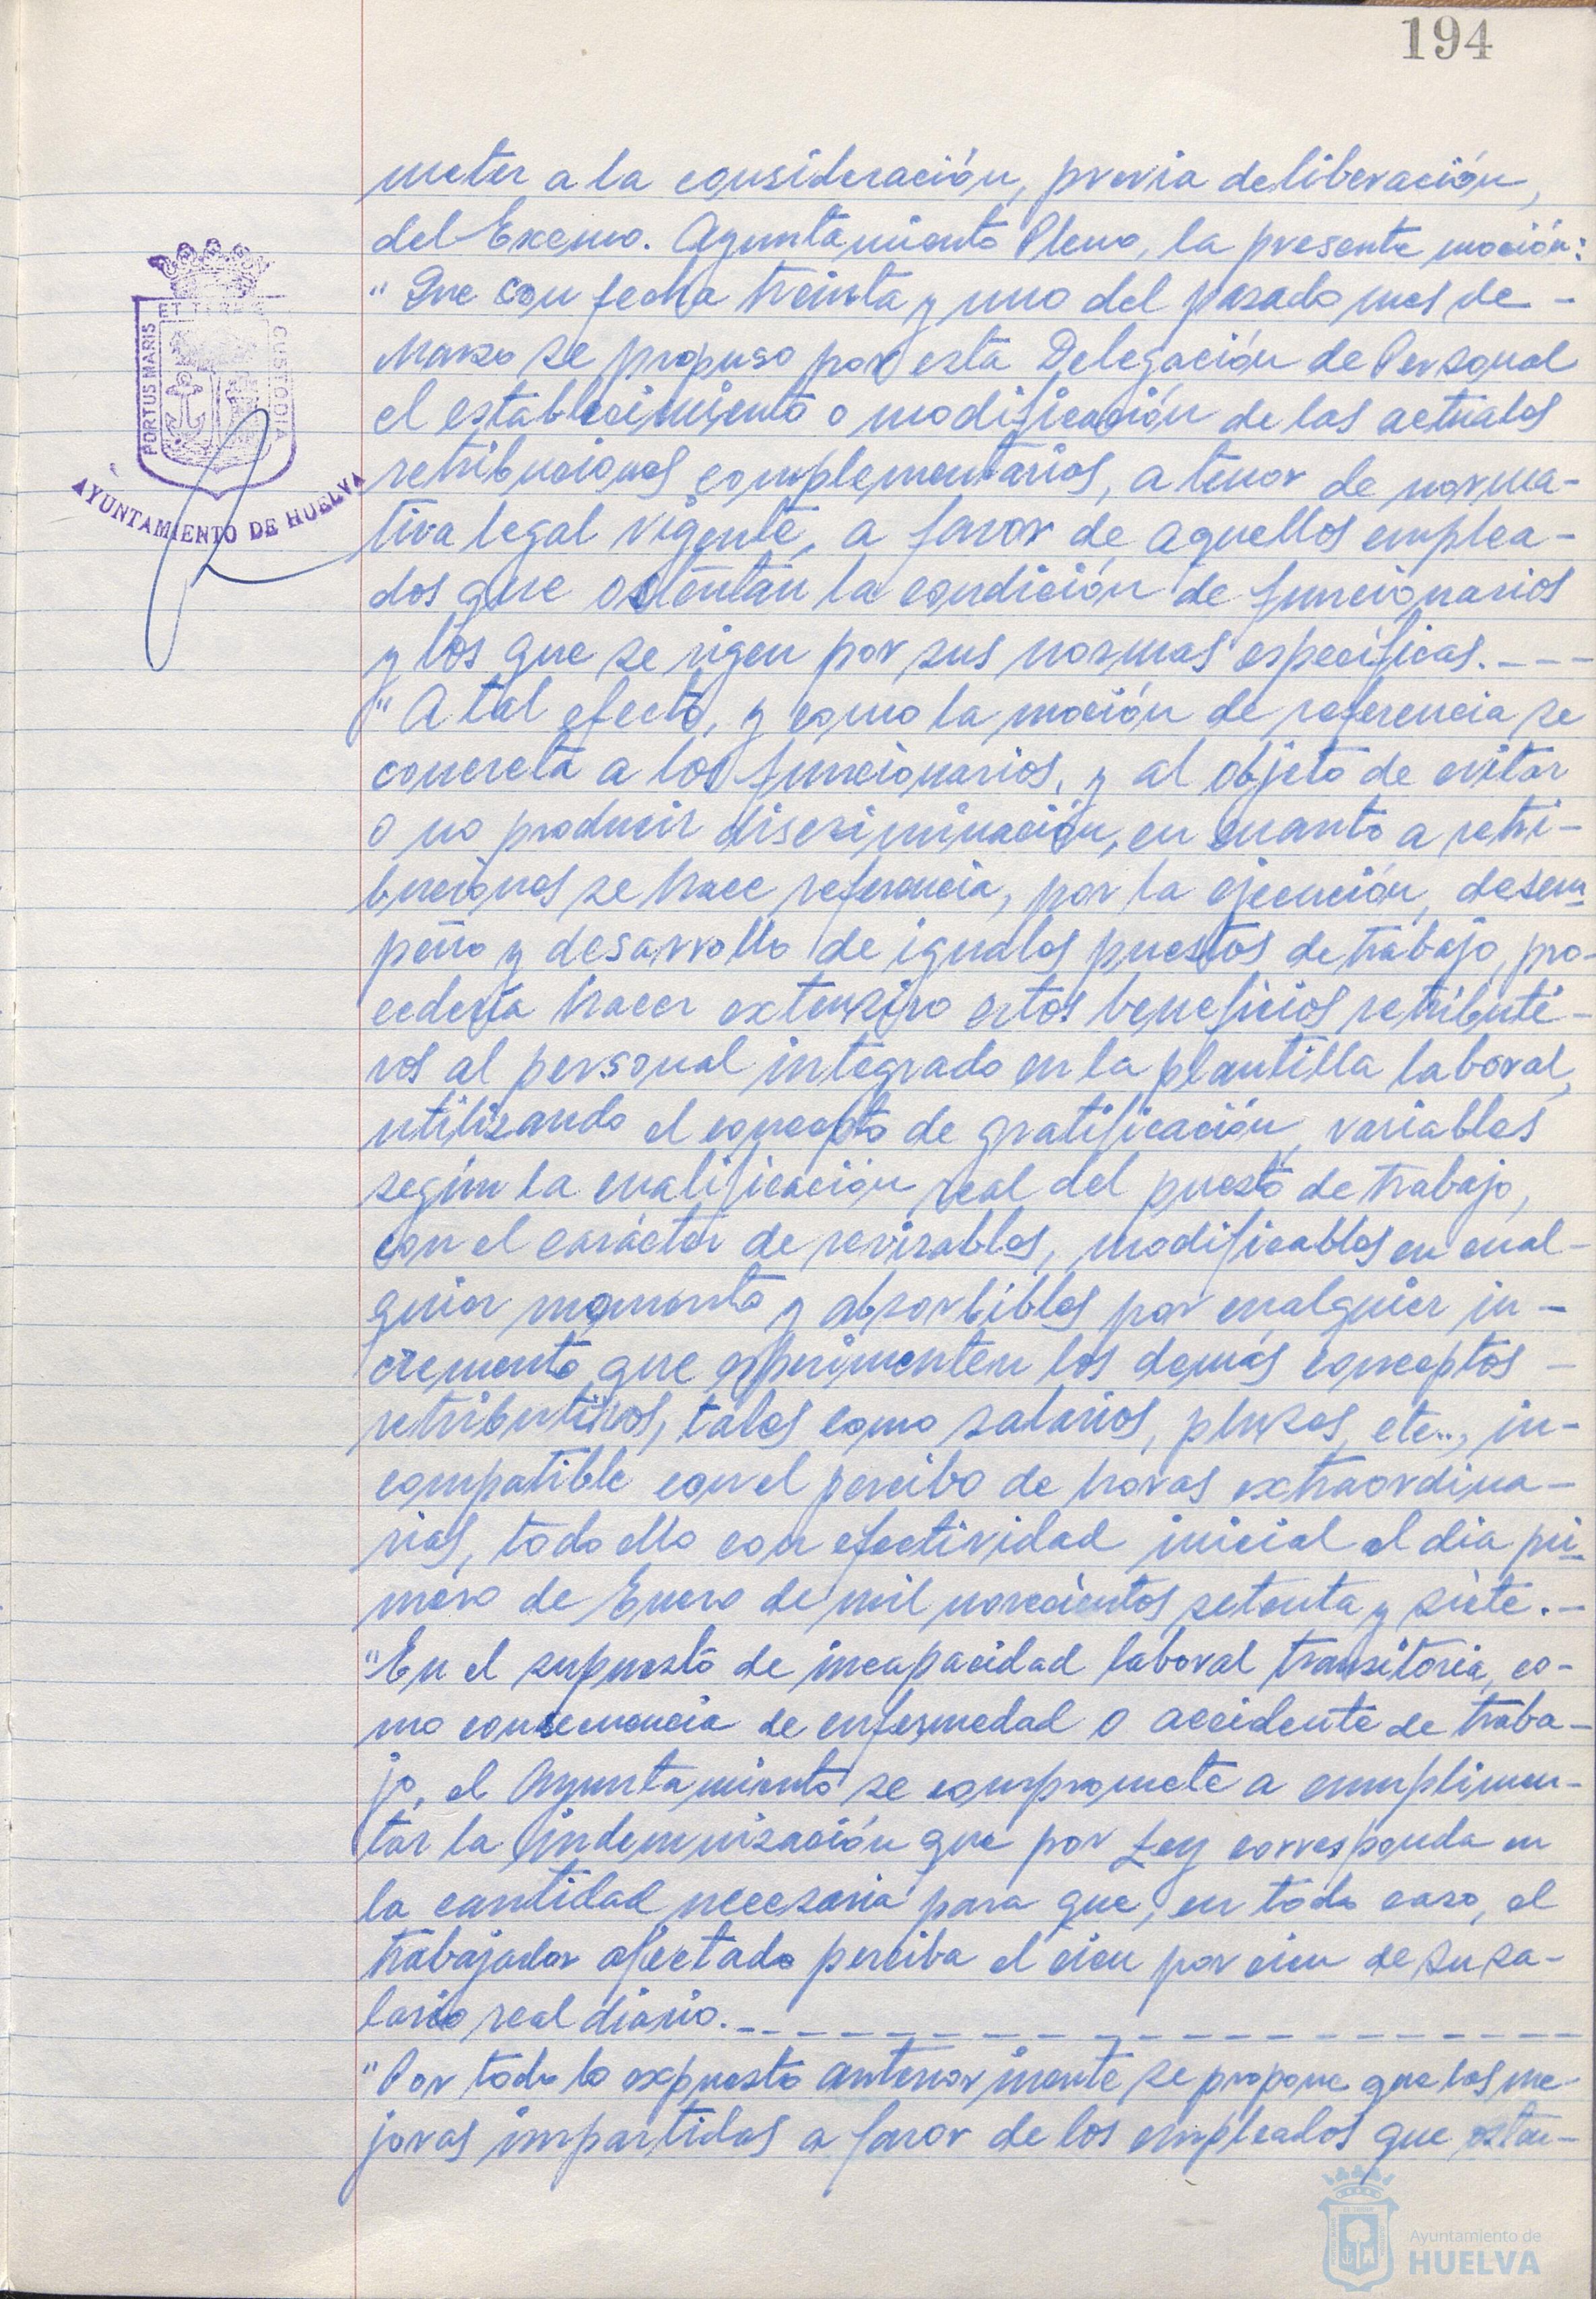 194
meter a la consideración, previa deliberación,
del Excmo. Ayuntamiento Pleno, la presente moción:
" Que con fecha treinta y uno del pasado mes de -
Marzo se propuso por esta Delegación de Personal
el establecimiento o modificación de las actuales
retribuciones complementarias, a tenor de norma-
tiva legal vigente, a favor de aquellos emplea-
dos que ostentan la condición de funcionarios
y los que se rigen por sus normas específicas. - - -
" A tal efecto, y como la moción de referencia se
concreta a los funcionarios, y al objeto de evitar
o no producir discriminación, en cuanto a retri-
buciones se hace referencia, por la ejecución, desem-
peño y desarrollo de iguales puestos de trabajo, pro-
cedería hacer extensivo estos beneficios retributi-
vos al personal integrado en la plantilla laboral,
utilizando el concepto de gratificación, variables
según la cualificación real del puesto de trabajo,
con el carácter de revisables, modificables en cual-
quier momento y absorbibles por cualquier in-
cremento que experimenten los demás conceptos -
retributivos, tales como salarios, pluses, etc.., in-
compatible con el percibo de horas extraordina-
rias, todo ello con efectividad inicial el dia pri-
mero de Enero de mil novecientos setenta y siete. -
"En el supuesto de incapacidad laboral transitoria, co-
mo consecuencia de enfermedad o accidente de traba-
jo, el Ayuntamiento se compromete a cumplimen-
tar la indemnización que por Ley corresponda en
la cantidad necesaria para que, en todo caso, el
trabajador afectado perciba el cien por cien de su sa-
lario real diario. - - - - - - - - - - - - - - - - -
"Por todo lo expuesto anteriormente se propone que las me-
joras impartidas a favor de los empleados que osten-
PORTUS MARIS
ET TERRA
CUSTODIA
AYUNTAMIENTO DE HUELVA
Ayuntamiento de
HUELVA